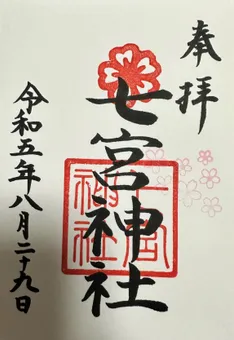 奉拝
七宮神社
七宮神社
令和五年八月二十九日